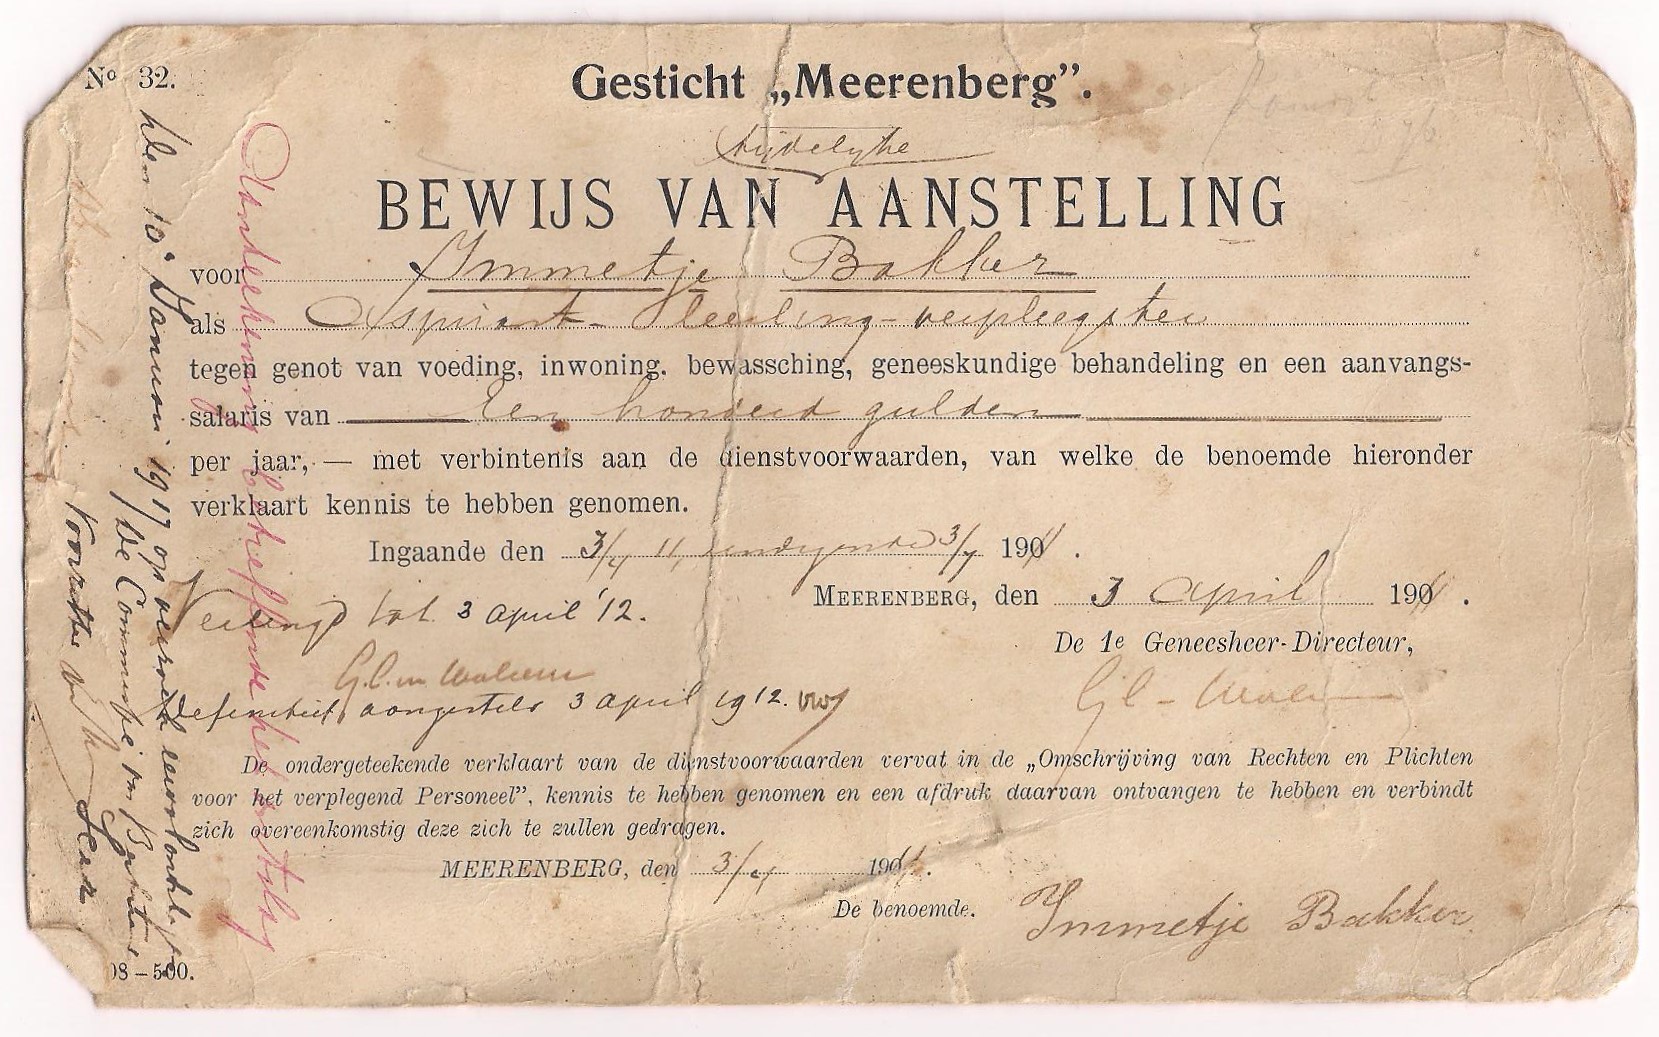 Nº 32.
Gesticht „Meerenberg”.
tijdelijke
BEWIJS VAN AANSTELLING
voor Immetje Bakker
als Aspirant-Leerling-verpleegster
tegen genot van voeding, inwoning, bewassching, geneeskundige behandeling en een aanvangs-
salaris van Een honderd gulden
per jaar, — met verbintenis aan de dienstvoorwaarden, van welke de benoemde hieronder
verklaart kennis te hebben genomen.
Ingaande den 3/4 11, eindigende 3/7 1911.
MEERENBERG, den 3 April 1911.
Verlengd tot 3 april '12.
De 1e Geneesheer-Directeur,
Definitief aangesteld 3 april 1912.
De ondergeteekende verklaart van de dienstvoorwaarden vervat in de „Omschrijving van Rechten en Plichten
voor het verplegend Personeel”, kennis te hebben genomen en een afdruk daarvan ontvangen te hebben en verbindt
zich overeenkomstig deze zich te zullen gedragen.
MEERENBERG, den 3/4 1911.
De benoemde.
Immetje Bakker
08–500.
Aanteekening betreffende
den 10e Januari 1917 op verzoek eervol ontsl.
De Commissie van
Voorzitter